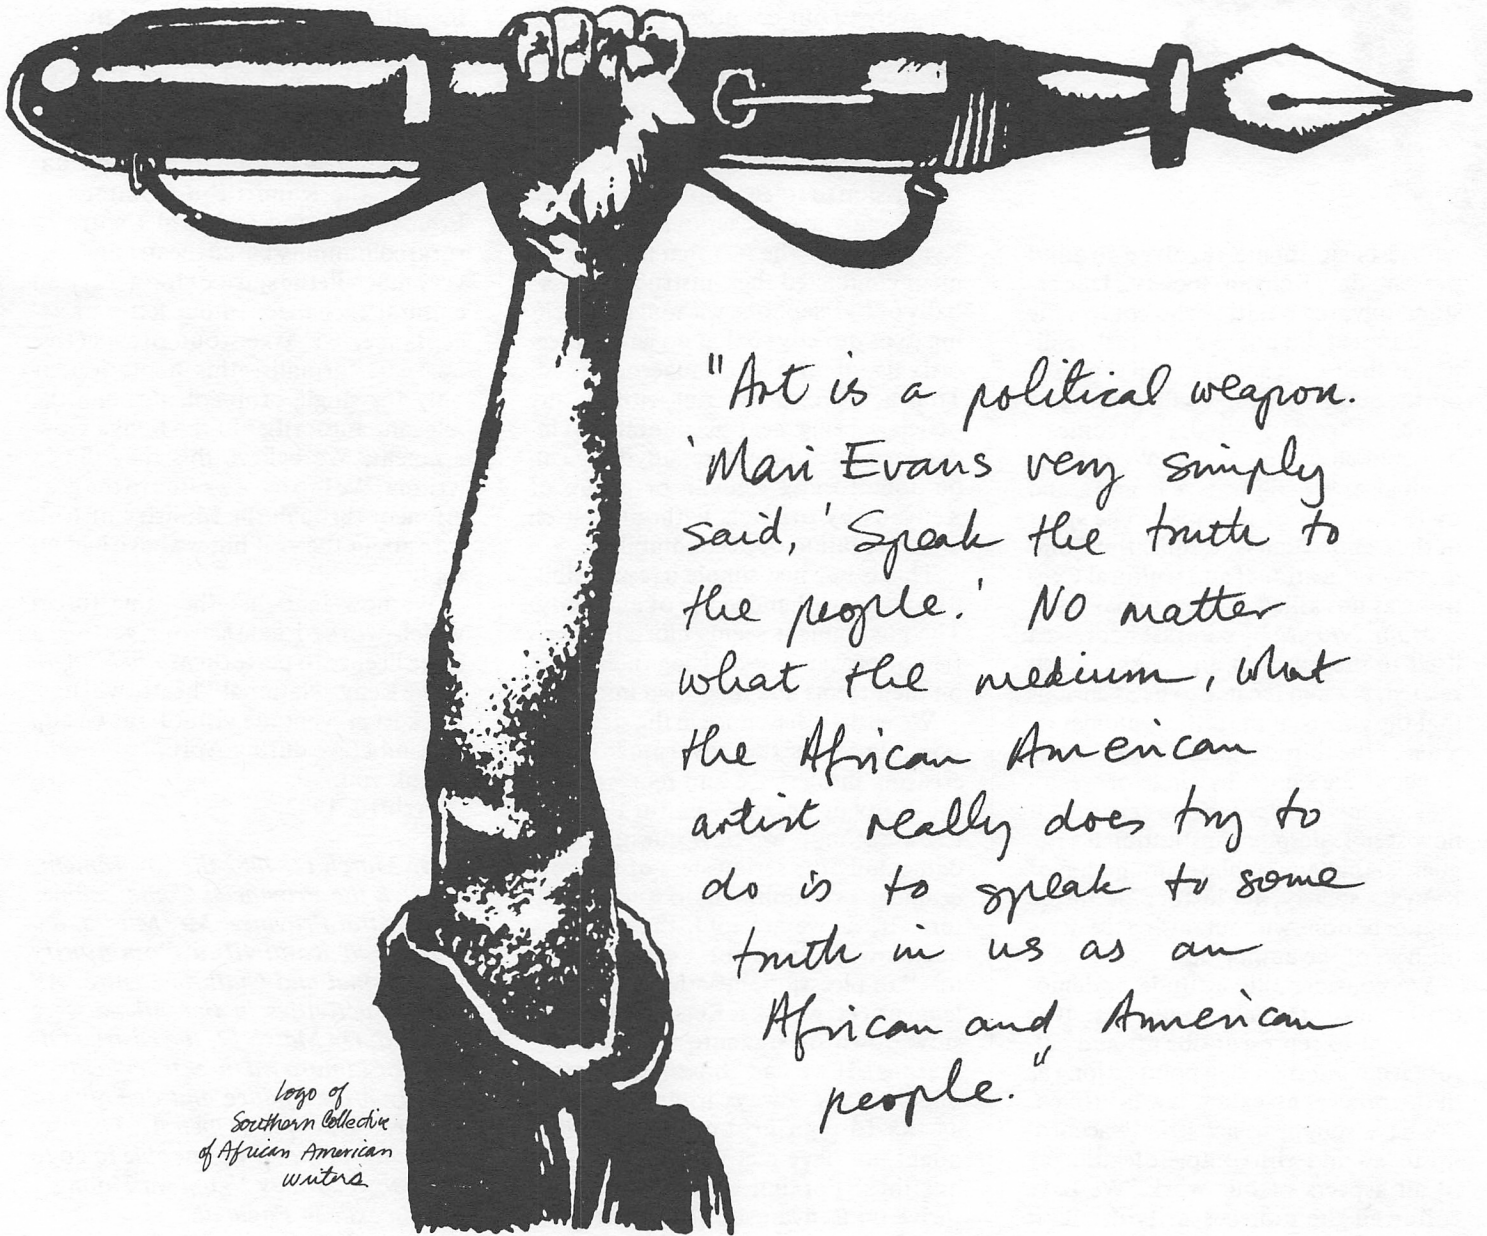 "Art is a political weapon.
'Mari Evans very simply
said, 'Speak the truth to
the people.' No matter
what the medium, what
the African American
artist really does try to
do is to speak to some
truth in us as an
African and American
people."
logo of
Southern Collective
of African American
writers